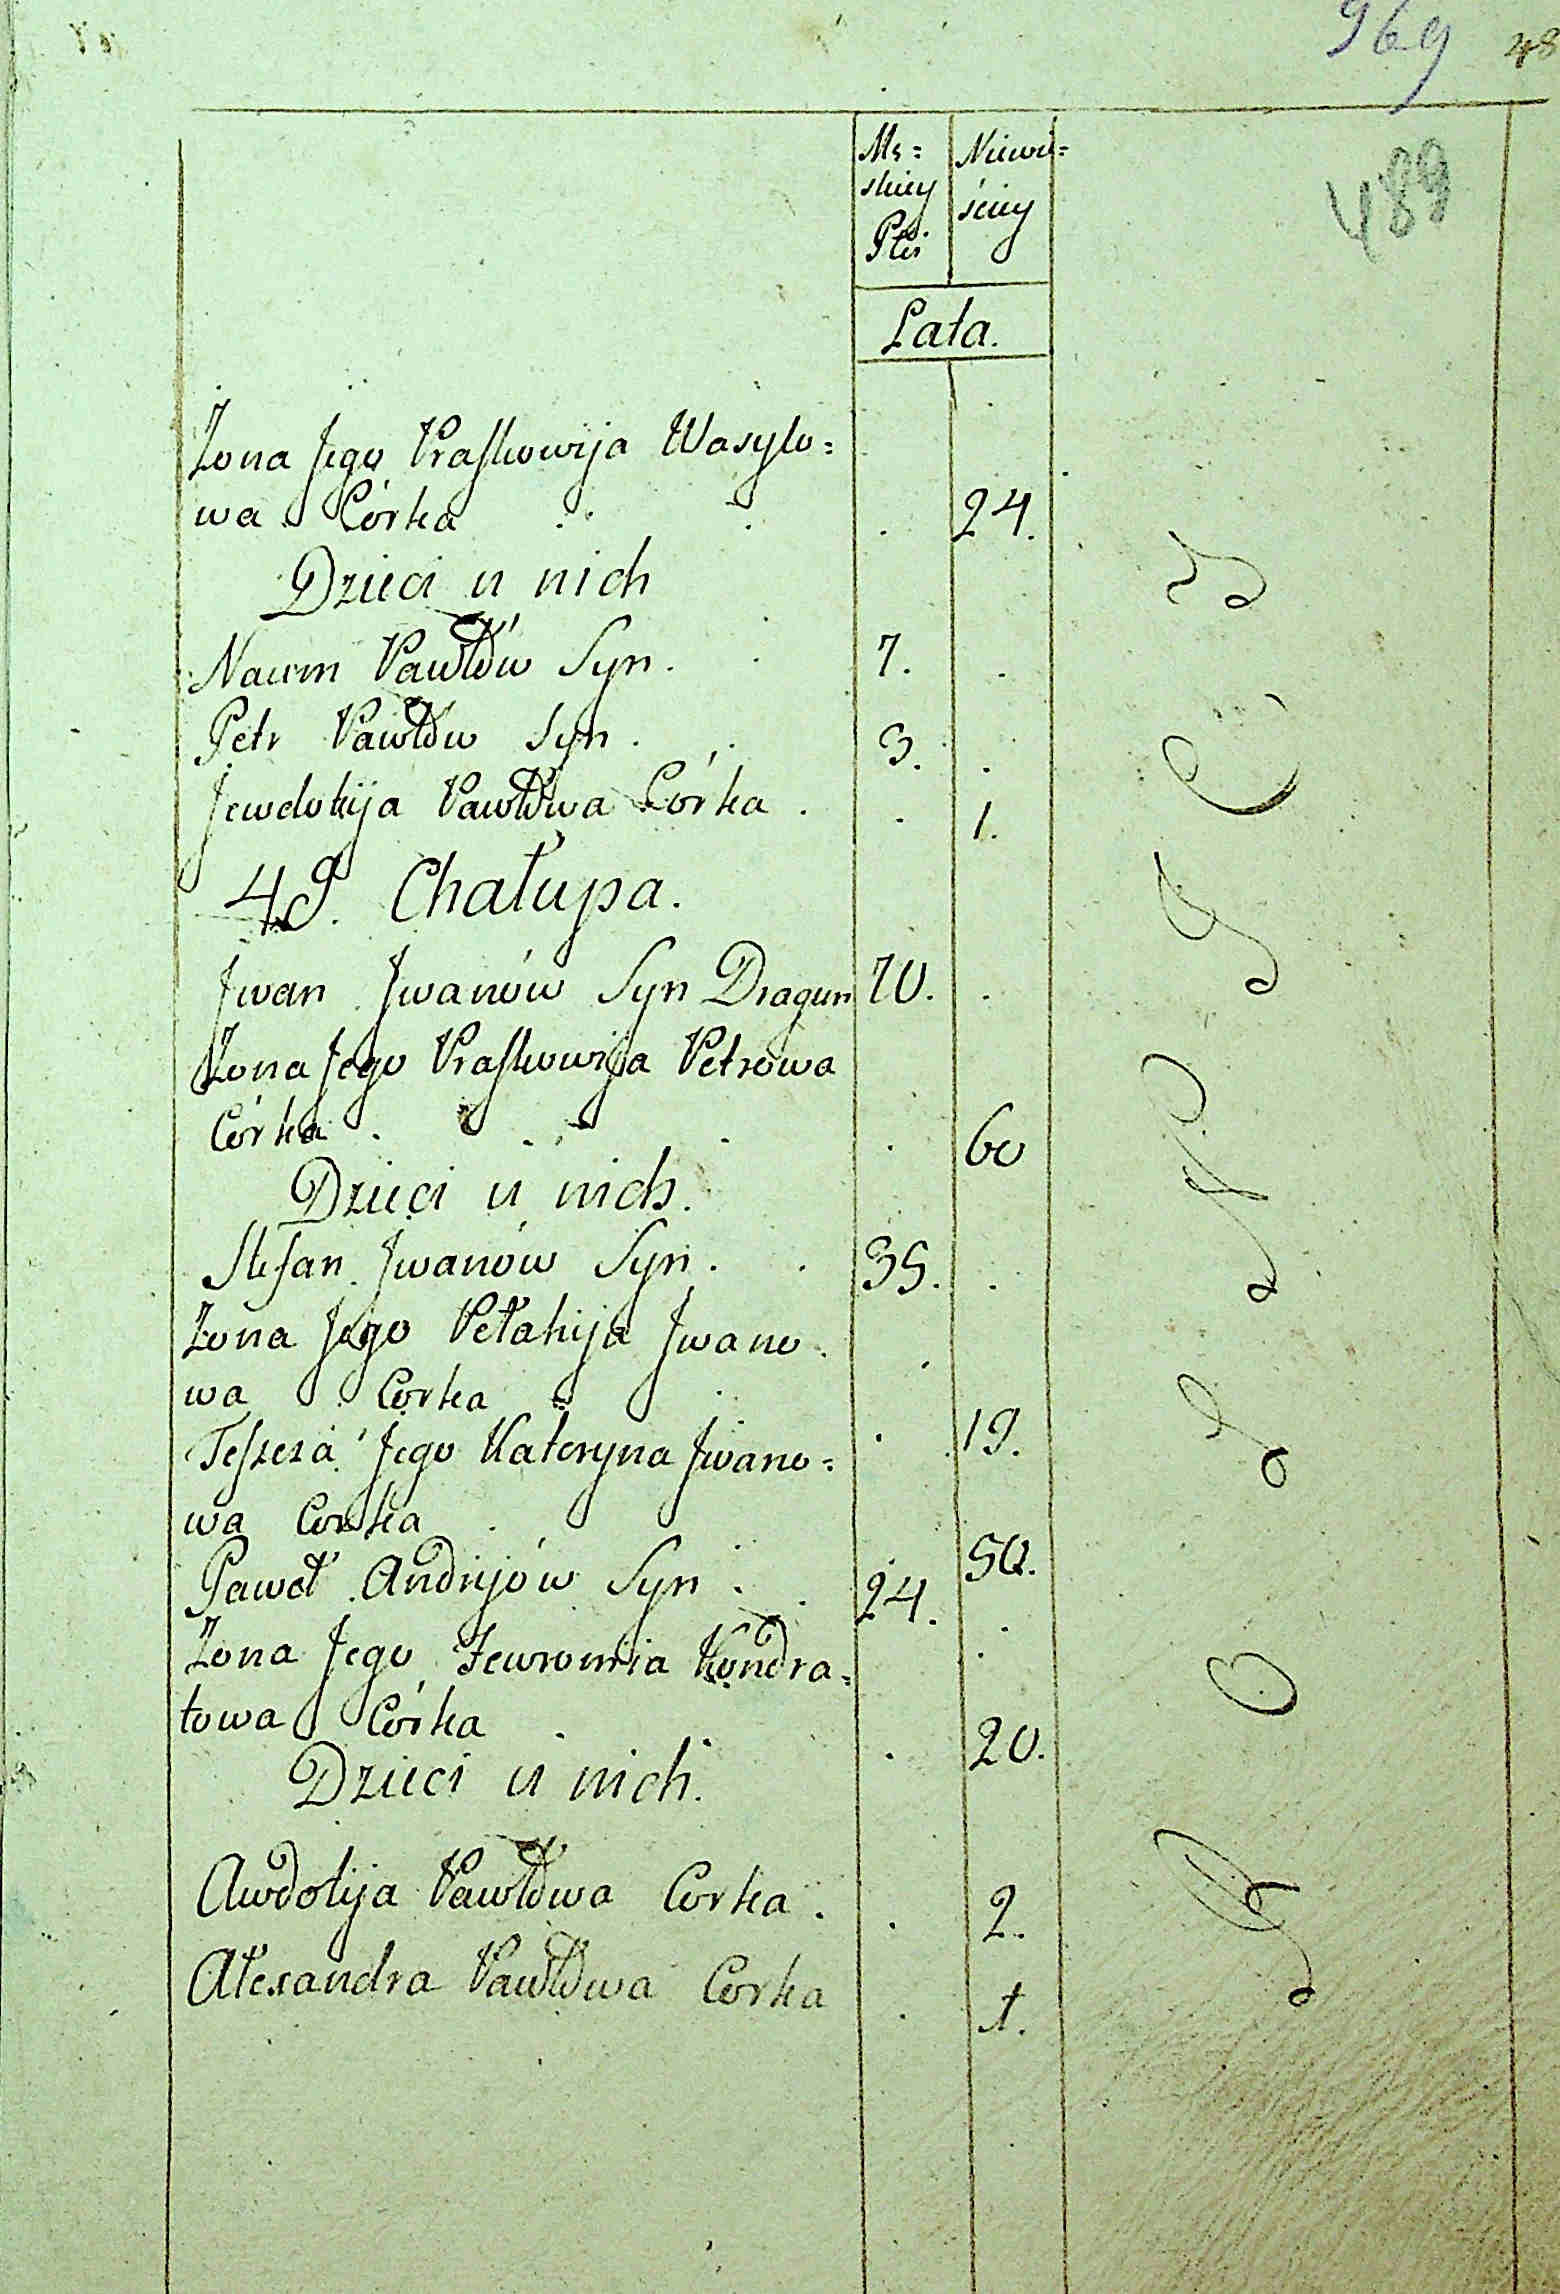 969 48
489
Mę= Niewi=
skiey ściey
Płci
Lata.
Żona Jego Praskowija Wasylo=
wa Córka . . . 24.
Dzieci u nich
Naum Pawłów Syn . . 7. .
Petr Pawłów Syn . . 3. .
Jewdokija Pawłowa Córka . . 1.
49. Chałupa.
Jwan Jwanów Syn Dragun 70. .
Żona Jego Praskowija Petrowa
Córka . . . . 60
Dzieci u nich.
Stefan Jwanów Syn . . 35. .
Żona Jego Pełahija Jwano=
wa Corka . . 19.
Teszcza Jego Kateryna Jwano=
wa Corka . 50.
Paweł Andryjów Syn . . 24. .
Żona Jego Jewromia Kondra=
towa Córka . . 20.
Dzieci u nich.
Awdotija Pawłowa Corka . . 2.
Ałexandra Pawłowa Corka . 1.